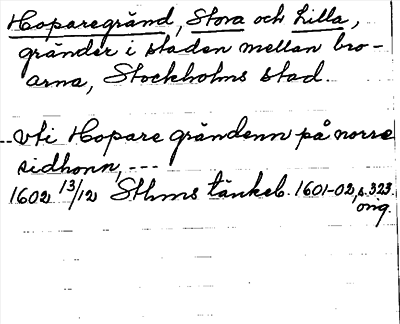 Hoparegränd, Stora och Lilla,
gränder i staden mellan bro-
arna, Stockholms stad.
vti Hopare grändenn på norre
sidhonn, ---
1602 13/12 Sthms tänkeb. 1601-02, s. 323.
orig.